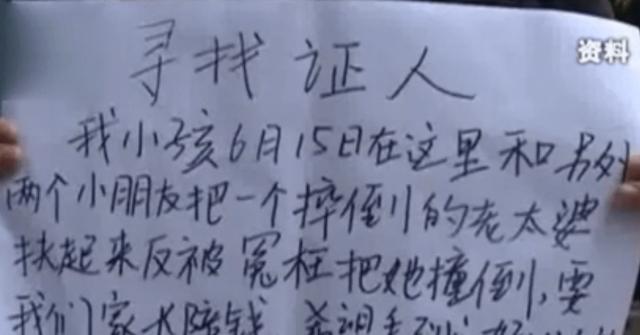 资料
寻找证人
我小孩6月15日在这里和另外
两个小朋友把一个摔倒的老太婆
扶起来反被冤枉把她撞倒,要
我们家大陪钱